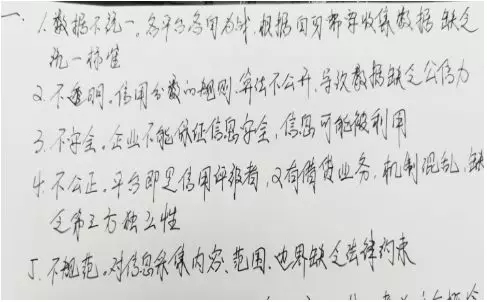 一、1.数据不统一。各平台各自为战，根据自身需求收集数据，缺乏
统一标准
2.不透明。信用分数的规则、算法不公开，导致数据缺乏公信力
3.不安全。企业不能保证信息安全，信息可能被利用
4.不公正。平台即是信用评级者，又有借贷业务，机制混乱，缺
乏第三方独立性
5.不规范。对信息采集内容、范围、边界缺乏法律约束